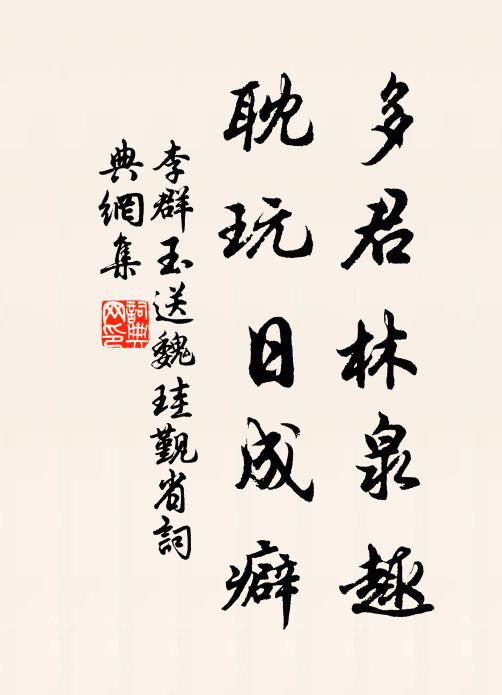 多君林泉趣
耽玩日成癖
李群玉送魏珪觐省詞
典網集
詞典網印